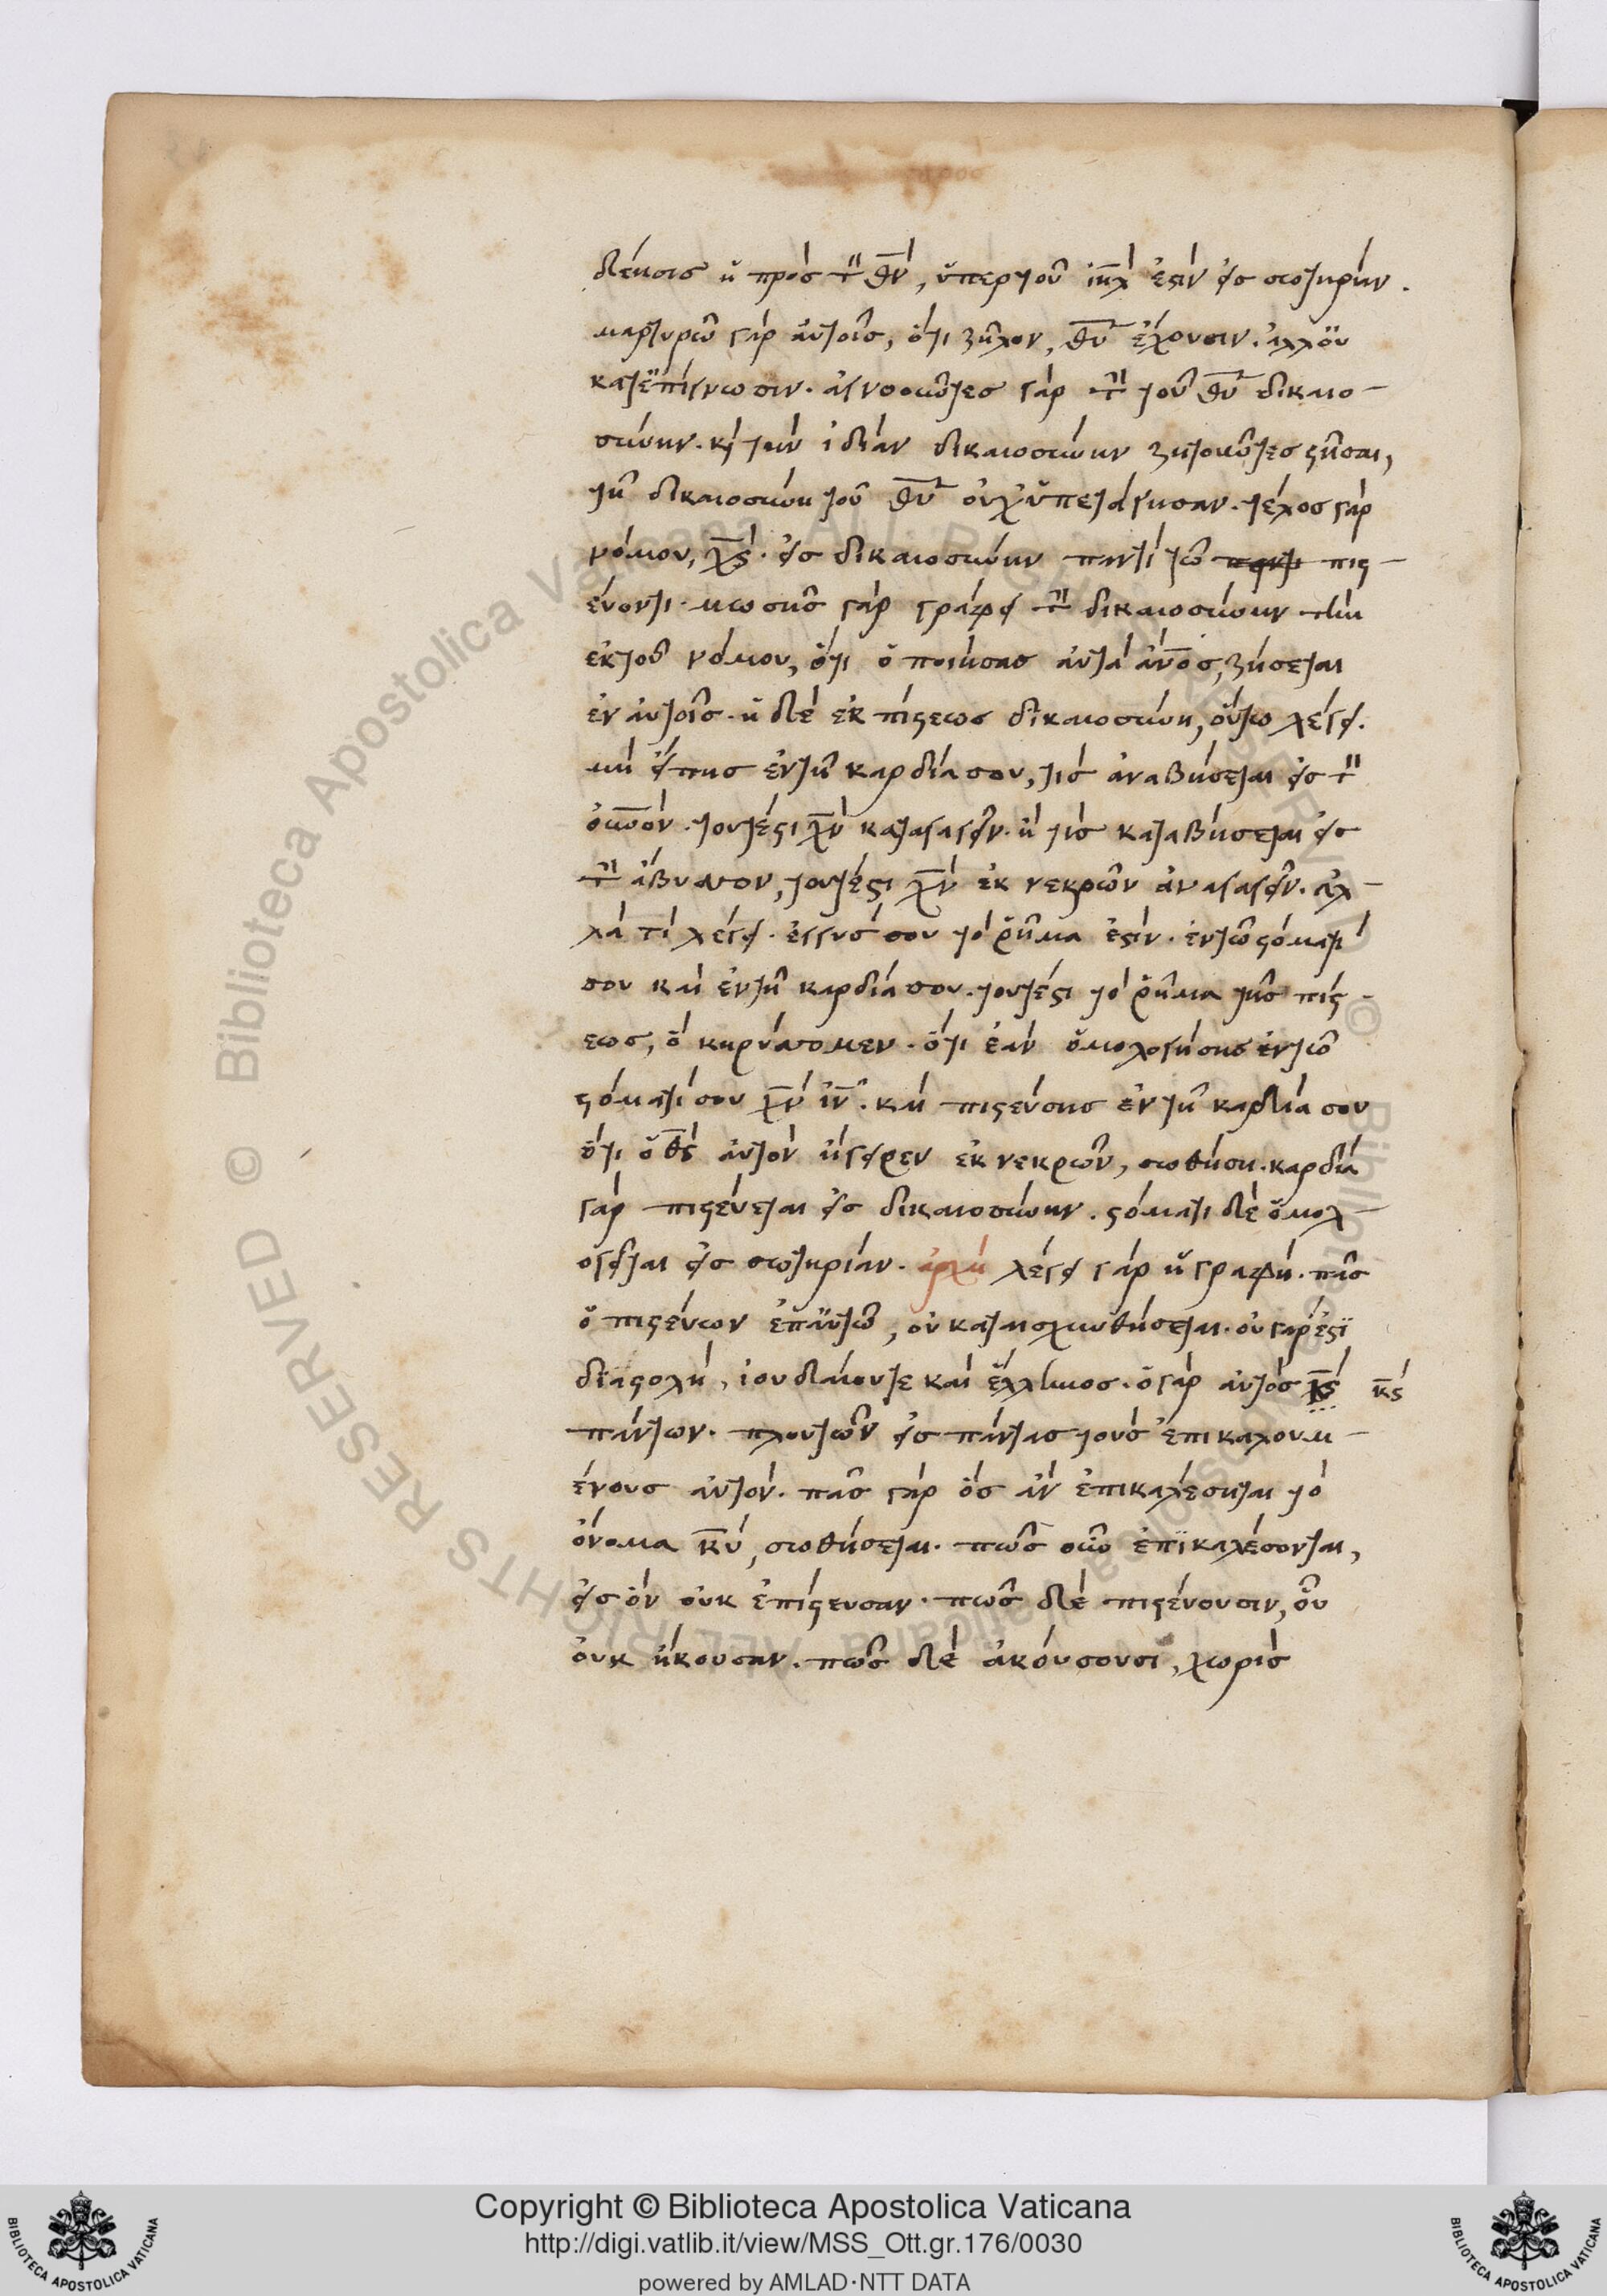 δέησις ἡ πρὸς τ(ὸν) θν̅, ὑπερ τοῦ ιηλ̅ ἐστὶν εἰς σωτηρίαν.
μαρτυρῶ γὰρ ἀυτοῖς, ὅτι ζῆλον, θυ̅ ἔχουσιν. ἀλλ' ὀυ
κατ' ἐπίγνωσιν. ἀγνοοῦντες γὰρ τ(ὴν) τοῦ θυ̅ δικαιο-
σύνην. κ(αὶ) τὴν ἰδίαν δικαιοσύνην ζητοῦντες στῆσαι,
τῆ δικαιοσύνη τοῦ θυ̅ οὐχ ὑπετάγησαν. τέλος γὰρ
νόμου, χς̅. εἰς δικαιοσύνην παντὶ τῶ πις-
έυοντι. μωσῆς γὰρ γράφει τ(ὴν) δικαιοσύνην τὴν
ἐκτοῦ νόμου, ὅτι ὁ ποιήσας ἀυτὰ ἀνος̅, ζήσεται
ἐν ἀυτοῖς. ἡ δὲ ἐκ πίστεως δικαιοσύνη, οὕτω λέγει.
μὴ ἔιπης ἐντῆ καρδία σου, τίς ἀναβήσεται εἰς τ(ὸν)
ὀυνον̅. τουτέστι χν̅ καταγαγεῖν. ἢ τίς καταβήσεται εἰς
τ(ὴν) ἄβυσσον, τουτέστι χν̅ ἐκ νεκρῶν ἀναγαγεῖν. ἀλ-
λὰ τί λέγει. ἐγγύς σου τὸ ῥῆμα ἐστίν. ἐντῶ στόματί
σου καὶ ἐντῆ καρδία σου. τουτέστι τὸ ῥῆμα τῆς πίς-
τεως, ὃ κηρύσσομεν. ὅτι ἐὰν ὁμολογήσης ἐντῶ
στόματί σου χν̅ ιν̅. καὶ πιστεύσης ἐν τῆ καρδία σου
ὅτι ὁ θς̅ ἀυτὸν ἤγειρεν ἐκ νεκρῶν, σωθήση. καρδία
γὰρ πιστεύεται εἰς δικαιοσύνην. στόματι δὲ ὁμολ-
ογεῖται εἰς σωτηρίαν. ἀρχὴ λέγει γὰρ ἡ γραφή. πᾶς
ὁ πιστεύων ἐπ' ἀυτῶ, οὐ καταισχυνθήσεται. οὐ γάρ ἐστϊ
διαστολὴ, ἰουδαίουτε καὶ ἕλληνος. ὁ γὰρ ἀυτὸς κς̅ κς̅
πάντων. πλουτῶν εἰς πάντας τοὺς ἐπικαλουμ-
ένους ἀυτόν. πᾶς γὰρ ὃς ἂν ἐπικαλέσηται τὸ
ὄνομα κυ̅, σωθήσεται. πῶς οὖν ἐπϊκαλέσονται,
εἰς ὃν ὀυκ ἐπίστευσαν. πῶς δὲ πιστεύουσιν, οὗ
ὀυκ ἤκουσαν. πῶς δὲ ἀκόυσουσι, χωρὶς
Copyright © Biblioteca Apostolica Vaticana
http://digi.vatlib.it/view/MSS_Ott.gr.176/0030
powered by AMLAD·NTT DATA
BIBLIOTECA APOSTOLICA VATICANA
BIBLIOTECA APOSTOLICA VATICANA
© Biblioteca Apostolica Vaticana ALL RIGHTS RESERVED
© Biblioteca Apostolica Vaticana ALL RIGHTS RESERVED